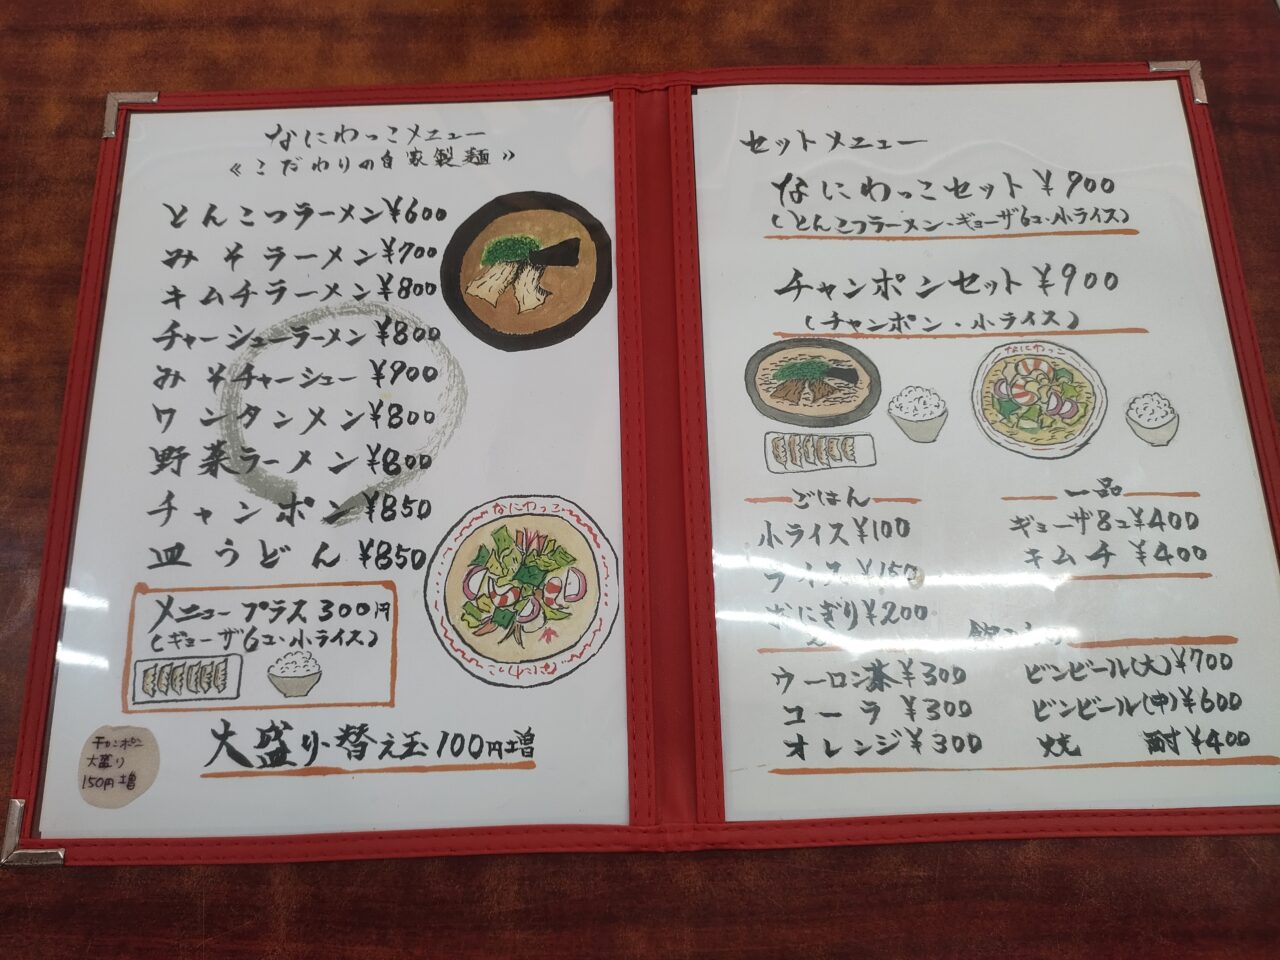 なにわっこメニュー
《こだわりの自家製麺》
とんこつラーメン¥600
みそラーメン¥700
キムチラーメン¥800
チャーシューラーメン¥800
みそチャーシュー ¥900
ワンタンメン¥800
野菜ラーメン¥800
チャンポン¥850
皿うどん ¥850
なにわっこ
なにわっこ
メニュープラス300円
(ギョーザ6コ・小ライス)
大盛り・替え玉100円増
チャンポン
大盛り
150円増
セットメニュー
なにわっこセット¥900
(とんこつラーメン・ギョーザ6コ・小ライス)
チャンポンセット¥900
(チャンポン・小ライス)
なにわっこ
ごはん
小ライス¥100
ライス¥150
おにぎり¥200
一品
ギョーザ8コ¥400
キムチ ¥400
ウーロン茶¥300
コーラ ¥300
オレンジ¥300
ビンビール(大)¥700
ビンビール(中)¥600
焼酎¥400